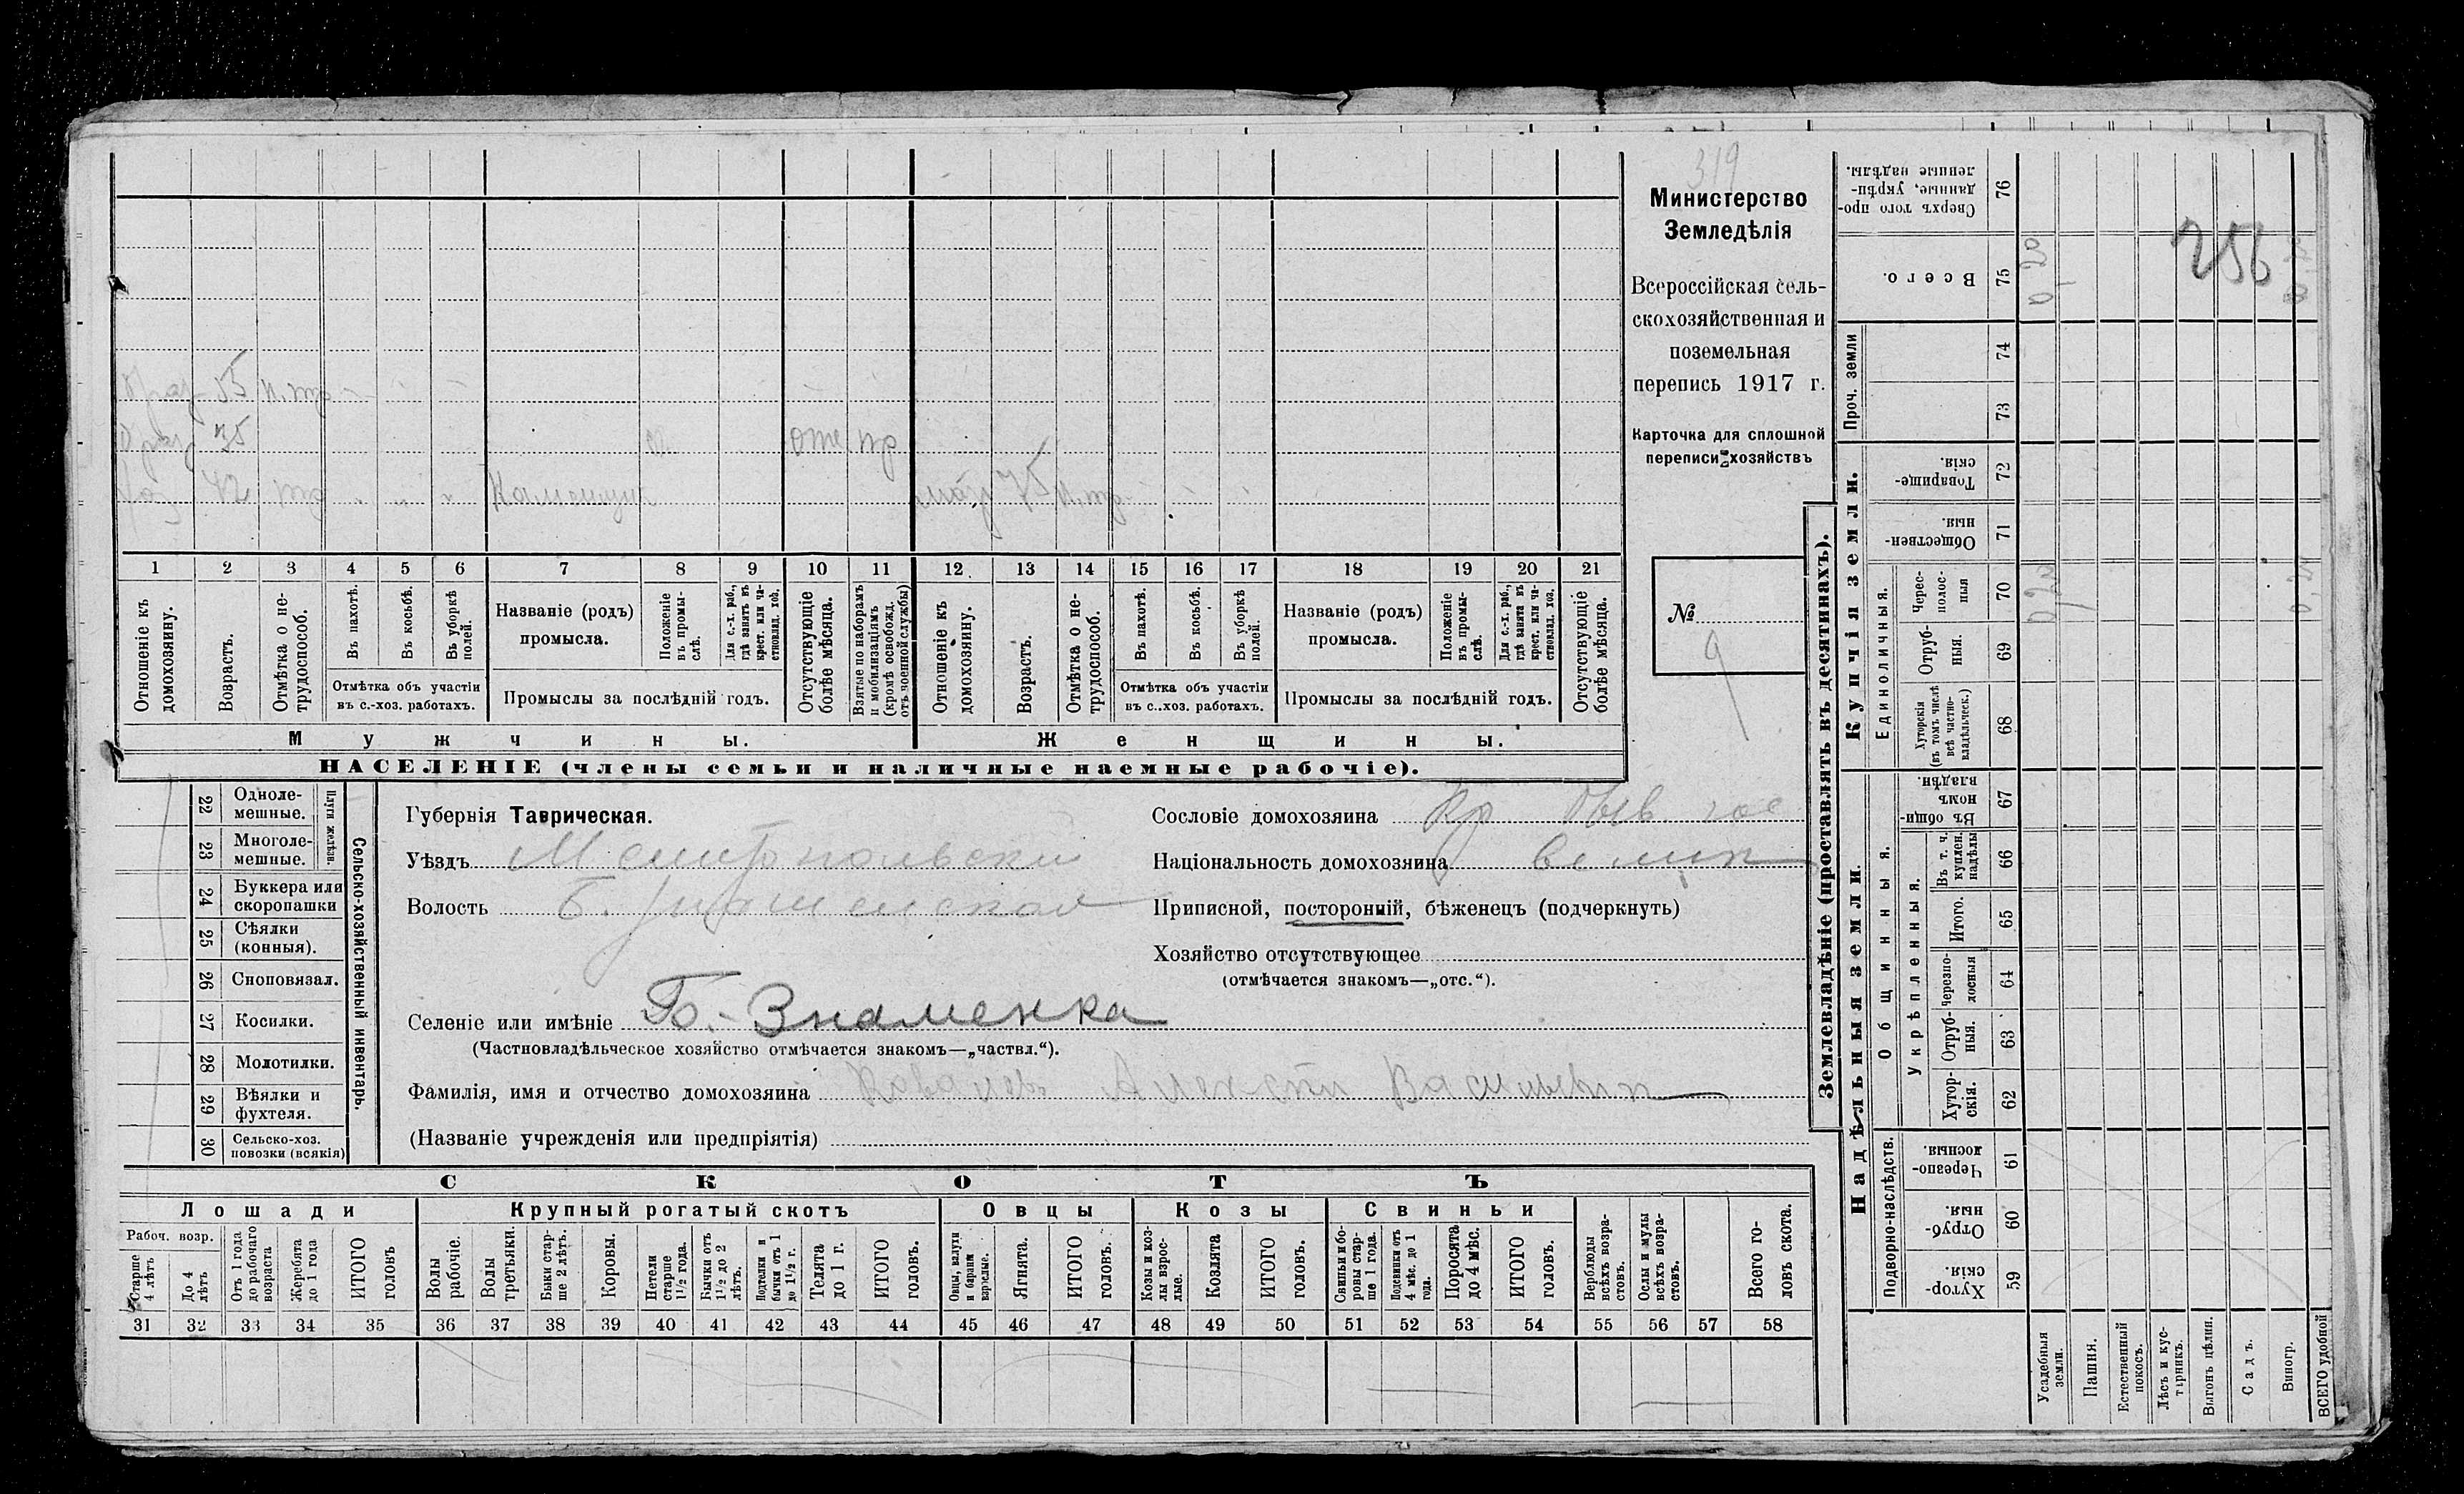 319
Министерство
Земледѣлія
Всероссійская сель-
скохозяйственная и
поземельная
перепись 1917 г.
Карточка для сплошной
переписи хозяйствъ
№
9
256
55 н.тр
35
отс тр
42 тр
Каменщик
мать 75 н.тр
1 2 3 4 5 6 7 8 9 10 11 12 13 14 15 16 17 18 19 20 21
Отношеніе къ домохозяину.
Возрастъ.
Отмѣтка о не-трудоспособ.
Въ пахотѣ.
Въ косьбѣ.
Въ уборкѣ полей.
Отмѣтка объ участіи
въ с.-хоз. работахъ.
Названіе (родъ)
промысла.
Положеніе въ промы-слѣ.
Для с.-х. раб., гдѣ занятъ въ крест. или ча-стновлад. хоз.
Промыслы за послѣдній годъ.
Отсутствующіе болѣе мѣсяца.
Взятые по наборамъ и мобилизаціямъ (кромѣ освобожд. отъ военной службы)
Отношеніе къ домохозяину.
Возрастъ.
Отмѣтка о не-трудоспособ.
Въ пахотѣ.
Въ косьбѣ.
Въ уборкѣ полей.
Отмѣтка объ участіи
въ с..хоз. работахъ.
Названіе (родъ)
промысла.
Положеніе въ промы-слѣ.
Для с.-х. раб., гдѣ занята въ крест. или ча-стновлад. хоз.
Промыслы за послѣдній годъ.
Отсутствующіе болѣе мѣсяца.
Мужчины.
Женщины.
НАСЕЛЕНІЕ (члены семьи и наличные наемные рабочіе).
Сельско-хозяйственный инвентарь.
Плуги желѣзн.
22 Одноле-мешные.
23 Многоле-мешные.
24 Буккера или скоропашки
25 Сѣялки (конныя).
26 Сноповязал.
27 Косилки.
28 Молотилки.
29 Вѣялки и фухтеля.
30 Сельско-хоз. повозки (всякія)
Губернія Таврическая.
Уѣздъ Мелитопольски
Волость
Селеніе или имѣніе Б.-Знаменка
(Частновладѣльческое хозяйство отмѣчается знакомъ—„частвл.“).
Фамилія, имя и отчество домохозяина Ковалевъ Алексѣй Васильевич
(Названіе учрежденія или предпріятія)
Сословіе домохозяина Кр быв гос
Національность домохозяина велик
Приписной, посторонній, бѣженецъ (подчеркнуть)
Хозяйство отсутствующее
(отмѣчается знакомъ—„отс.“).
СКОТЪ
Лошади
Крупный рогатый скотъ
Овцы
Козы
Свиньи
Рабоч. возр.
Старше 4 лѣтъ
До 4 лѣтъ
Отъ 1 года до рабочаго возраста
Жеребята до 1 года
ИТОГО головъ
Волы рабочіе.
Волы третьяки.
Быки стар-ше 2 лѣтъ.
Коровы.
Нетели старше 1½ года.
Бычки отъ 1½ до 2 лѣтъ.
Подтелки и бычки отъ 1 до 1½ г.
Телята до 1 г.
ИТОГО головъ.
Овцы, валухи и бараны взрослые.
Ягнята.
ИТОГО головъ.
Козы и коз-лы взрос-лые.
Козлята
ИТОГО головъ.
Свиньи и бо-ровы стар-ше 1 года.
Подсвинки отъ 4 мѣс. до 1 года.
Поросята до 4 мѣс.
ИТОГО головъ.
Верблюды всѣхъ возра-стовъ.
Ослы и мулы всѣхъ возра-стовъ.
Всего го-ловъ скота.
31 32 33 34 35 36 37 38 39 40 41 42 43 44 45 46 47 48 49 50 51 52 53 54 55 56 57 58
Землевладѣніе (проставлять въ десятинахъ).
Купчія земли.
Надѣльныя земли.
Проч. земли
Единоличныя.
Общинныя.
Укрѣпленныя.
Подворно-наслѣдств.
Сверхъ того про-данные, укрѣп-ленные надѣлы. 76
Всего. 75 0,20
74
73
Товарище-скія. 72
Обществен-ныя. 71
Черес-полос-ныя 70 0,20
Отруб-ныя. 69
Хуторскія (въ томъ числѣ всѣ частно-владѣльческ.) 68
Въ общи-номъ владѣн. 67
Въ т. ч. куплен. надѣлы 66
Итого. 65
Черезпо-лосныя 64
Отруб-ныя. 63
Хутор-скія. 62
Черезпо-лосныя 61
Отруб-ныя. 60
Хутор-скія. 59
Усадебныя земли.
Пашня.
Естественный покосъ.
Лѣсъ и кус-тарникъ.
Выгонъ цѣлин.
Садъ.
Виногр.
ВСЕГО удобной